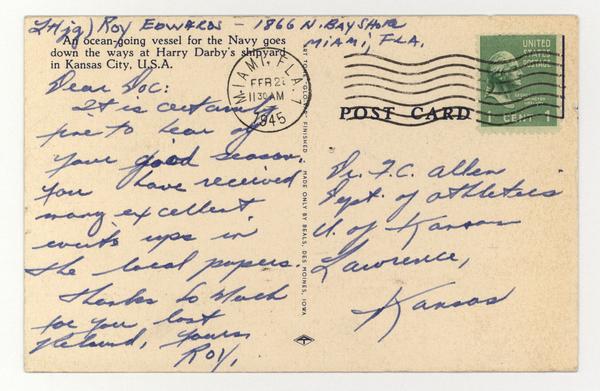 Lt(jg) ROY EDWARDS – 1866 N. BAY SHORE
MIAMI, FLA.
An ocean-going vessel for the Navy goes
down the ways at Harry Darby's shipyard
in Kansas City, U.S.A.
Dear Doc:
It is certainly
fine to hear of
your good season.
you have received
many excellent
write ups in
the local papers.
Thanks so much
for you last
Yours
ROY.
MIAMI, FLA.
FEB 2
11 30 AM
1945
MADE ONLY BY BEALS, DES MOINES, IOWA
POST CARD
UNITED
STATES
POSTAGE
1 CENT 1
Dr. F.C. Allen
Dept. of Athletics
U. of Kansas
Lawrence,
Kansas